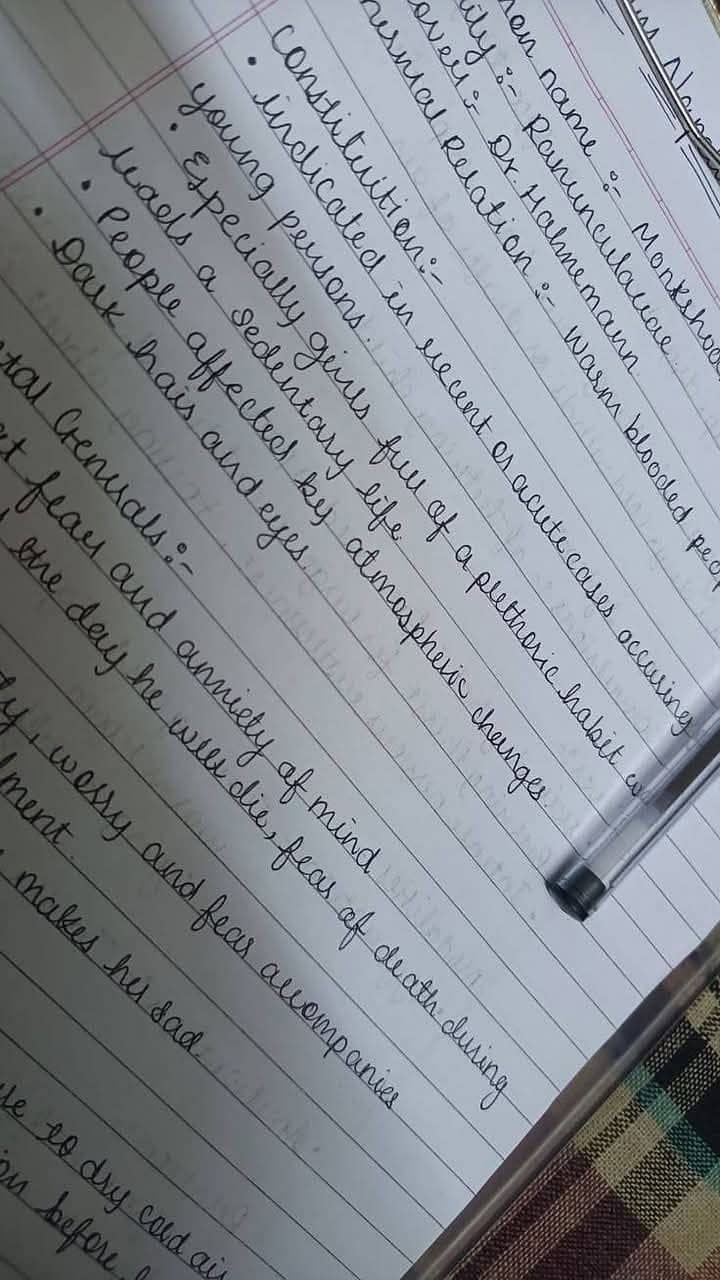 name :- Monkshood
:- Ranunculaceae
:- Dr. Hahnemann
Relation :- Warm blooded
Constituition :-
• indicated in recent or acute cases occuring
young persons.
• Especially girls full of a plethoric habit
leads a sedentary life
• People affected by atmospheric changes.
• Dark hair and eyes.
Generals :-
fear and anxiety of mind
the day he will die, fear of death during
, worry and fear accompanies
makes her sad
to dry cold air
before